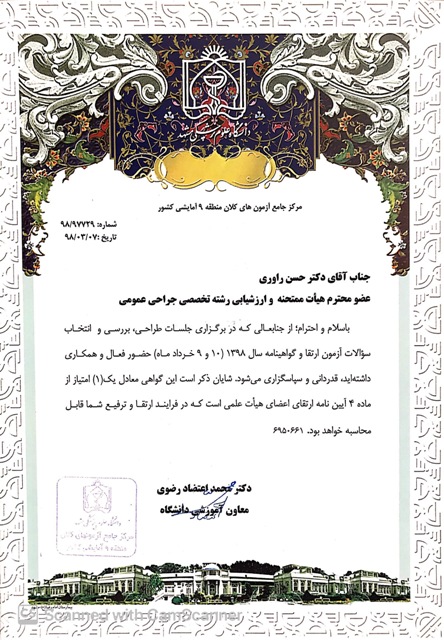 دانشگاه علوم پزشکی مشهد
مرکز جامع آزمون های کلان منطقه ۹ آمایشی کشور
شماره: ۹۸/۹۷۷۲۹
تاریخ: ۹۸/۰۳/۰۷
جناب آقای دکتر حسن راوری
عضو محترم هیأت ممتحنه و ارزشیابی رشته تخصصی جراحی عمومی
باسلام و احترام؛ از جنابعالی که در برگزاری جلسات طراحی، بررسی و انتخاب
سؤالات آزمون ارتقا و گواهینامه سال ۱۳۹۸ (۱۰ و ۹ خرداد ماه) حضور فعال و همکاری
داشته‌اید، قدردانی و سپاسگزاری می‌شود. شایان ذکر است این گواهی معادل یک(۱) امتیاز از
ماده ۴ آیین نامه ارتقای اعضای هیأت علمی است که در فرایند ارتقا و ترفیع شما قابل
محاسبه خواهد بود. ۶۹۵۰۶۶۱
دکتر محمد اعتضاد رضوی
معاون آموزشی دانشگاه
دانشگاه علوم پزشکی مشهد
مرکز جامع آزمونهای کلان
منطقه ۹ آمایشی
CS Scanned with CamScanner